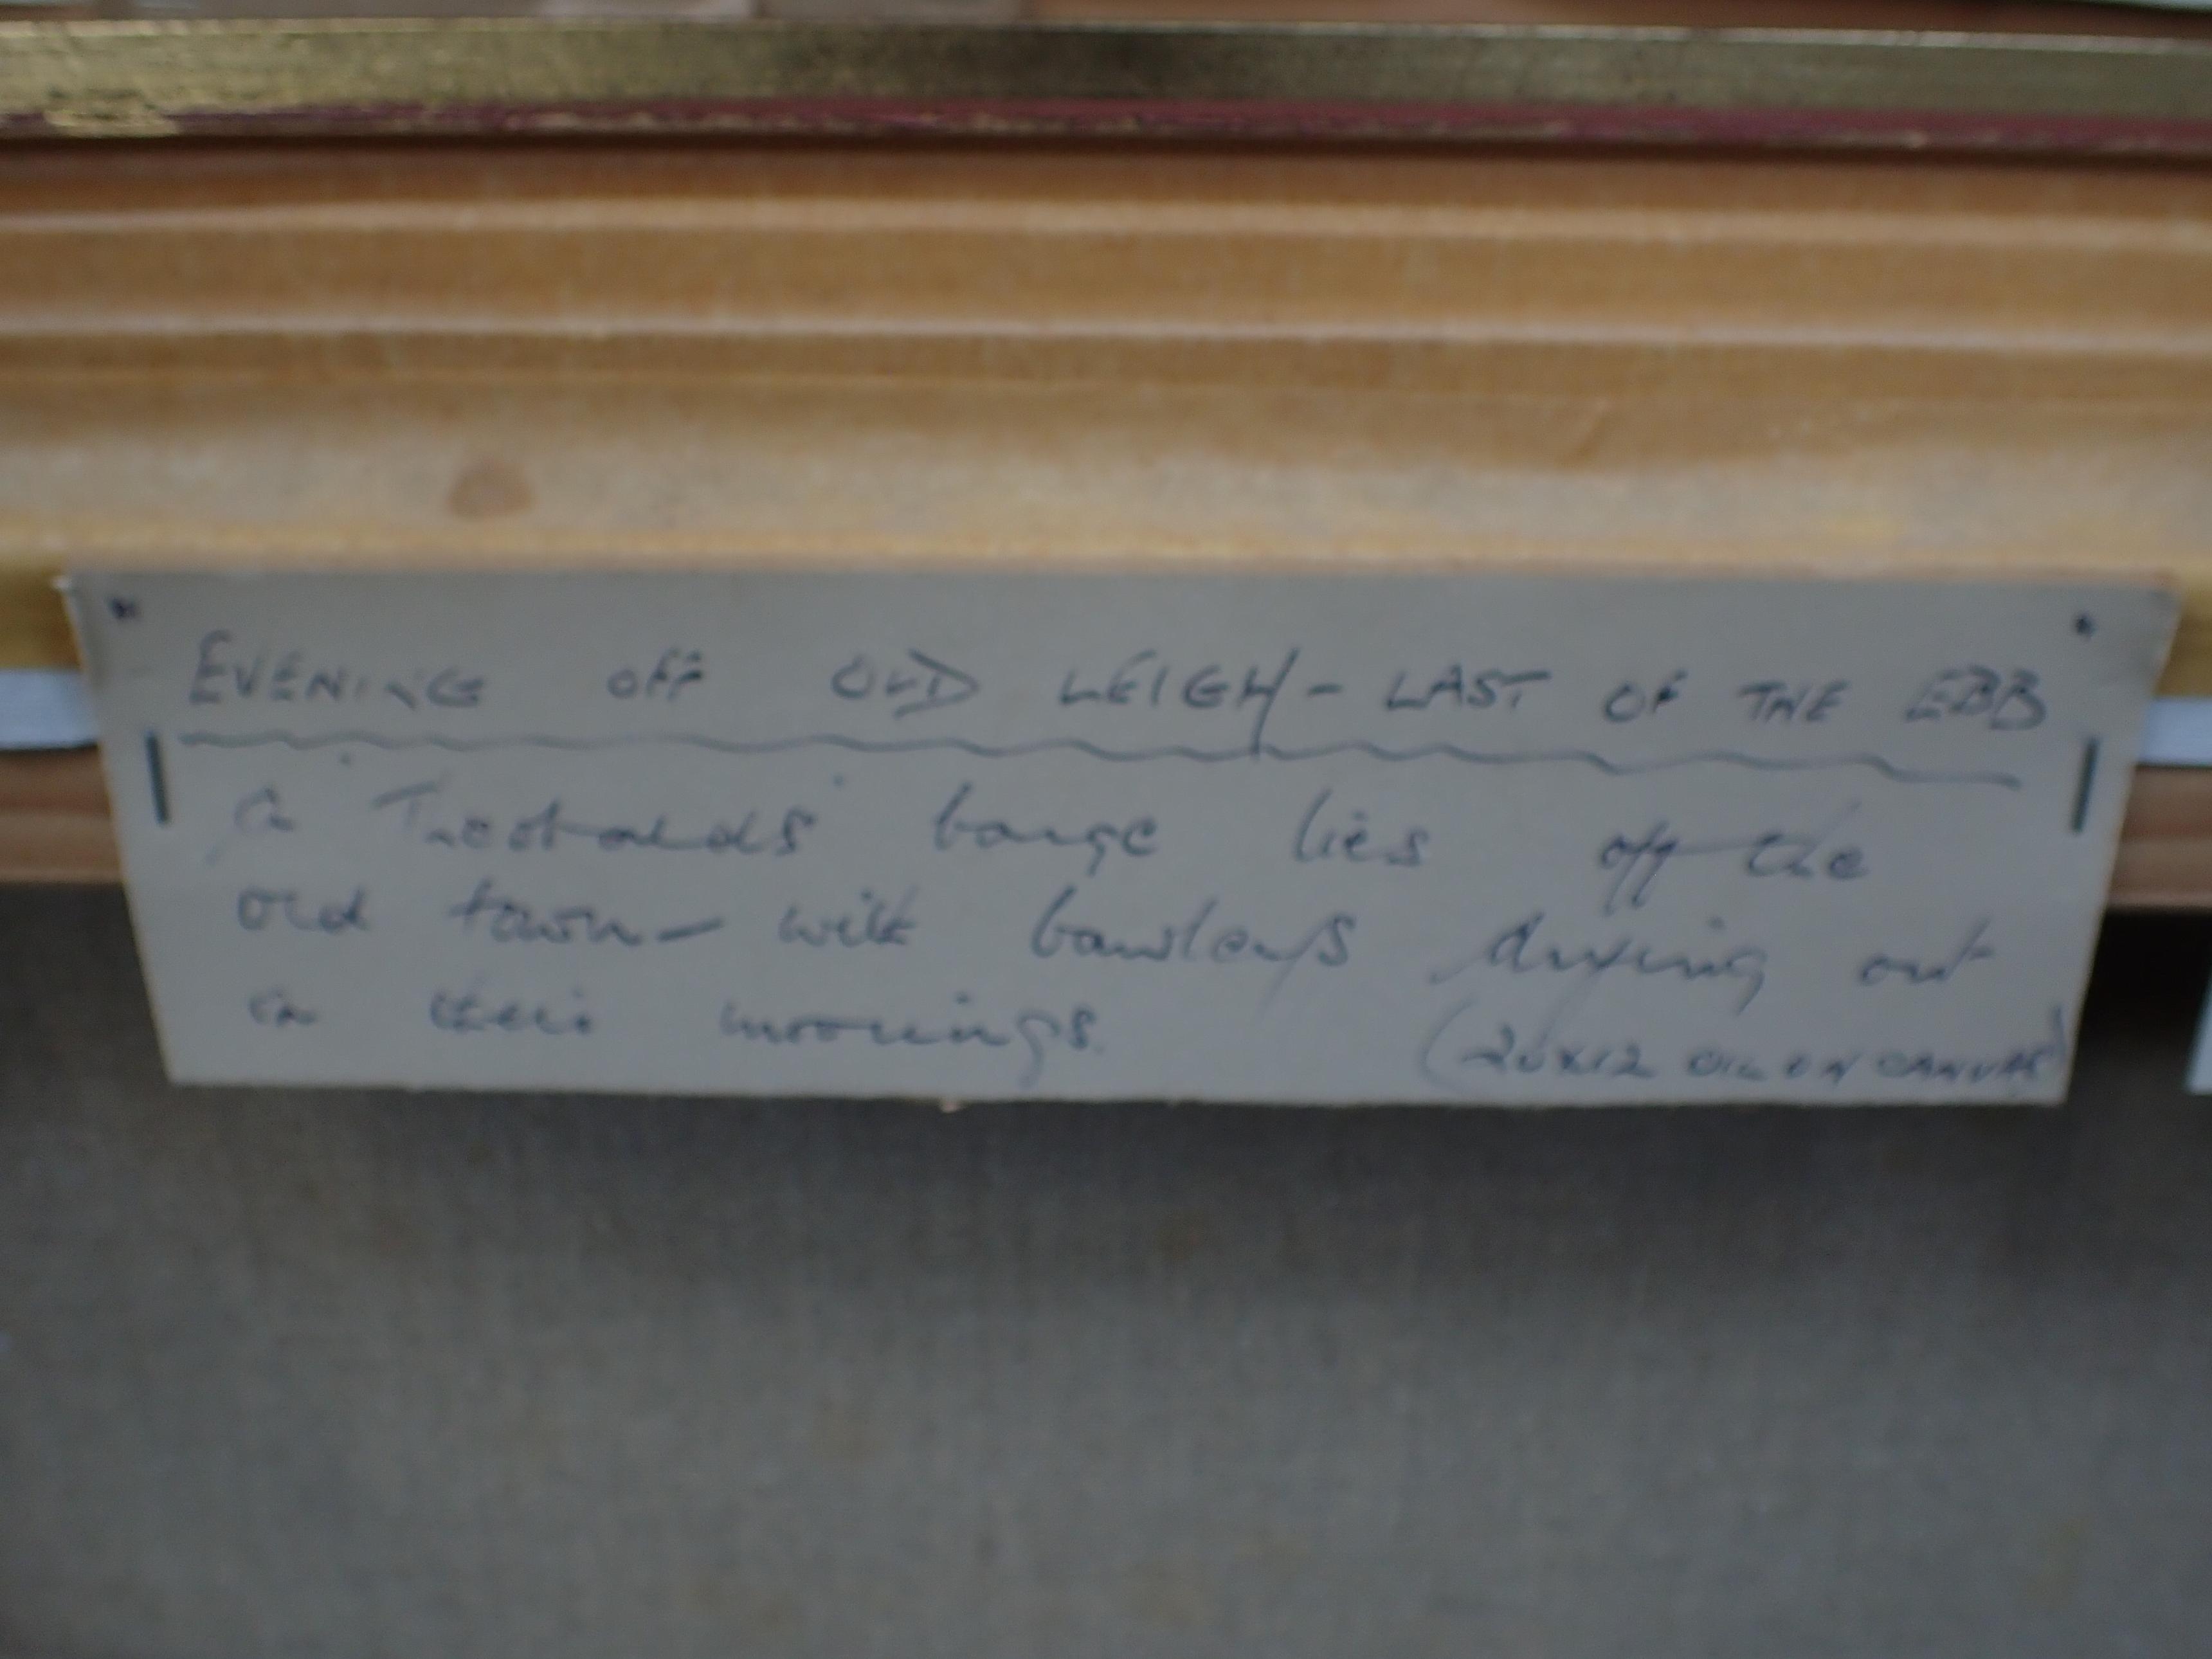 EVENING OFF OLD LEIGH - LAST OF THE EBB
a barge lies off the
old town - with bawleys drying out
in their moorings.
(20x12 OIL ON CANVAS)